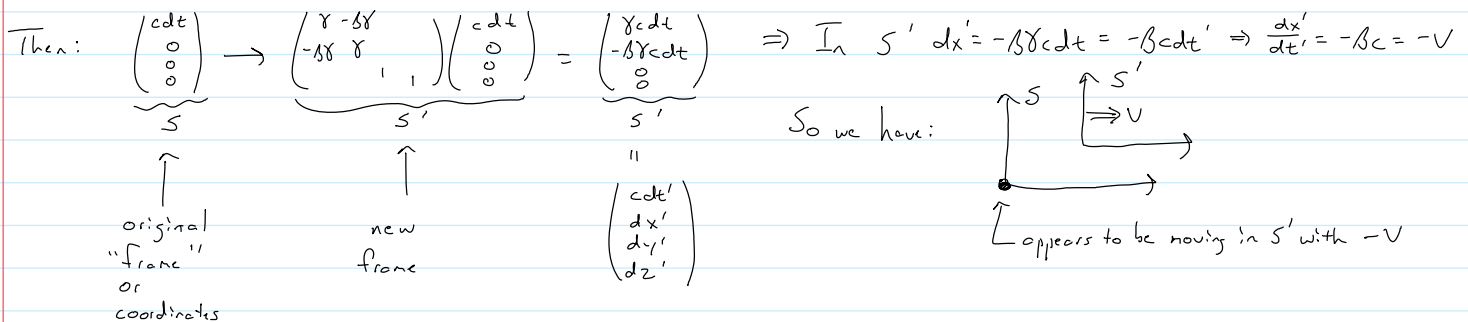 Then: (cdt 0 0 0) → (γ -βγ -βγ γ 1 1) (cdt 0 0 0) = (γcdt -βγcdt 0 0) ⇒ In S' dx' = -βγcdt = -βcdt' ⇒ dx'/dt' = -βc = -v
S S' S'
So we have: S S' ⇒ v
"
original "frame" or coordinates
new frame
(cdt' dx' dy' dz')
appears to be moving in S' with -v